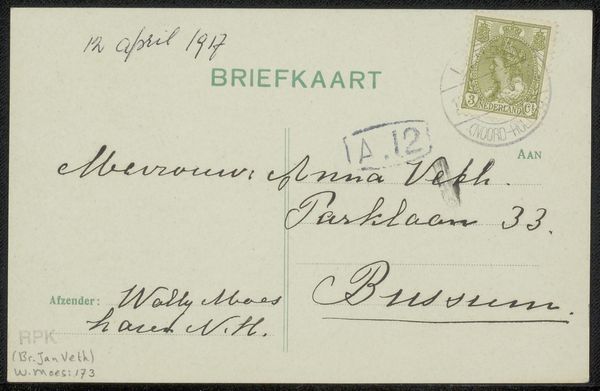 12 april 1917
BRIEFKAART
3 NEDERLAND Ct
(NOORD-HOL
A.12
AAN
Mevrouw: Anna Veth.
Parklaan 33.
Bussum.
Afzender: Wally Moes
Laren N.H.
RPK
(Br. Jan Veth)
W. Moes: 173